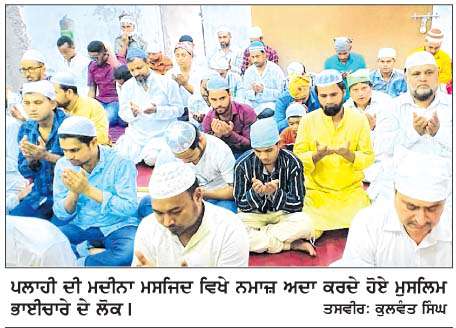 ਪਲਾਹੀ ਦੀ ਮਦੀਨਾ ਮਸਜਿਦ ਵਿਖੇ ਨਮਾਜ਼ ਅਦਾ ਕਰਦੇ ਹੋਏ ਮੁਸਲਿਮ
ਭਾਈਚਾਰੇ ਦੇ ਲੋਕ। ਤਸਵੀਰ: ਕੁਲਵੰਤ ਸਿੰਘ